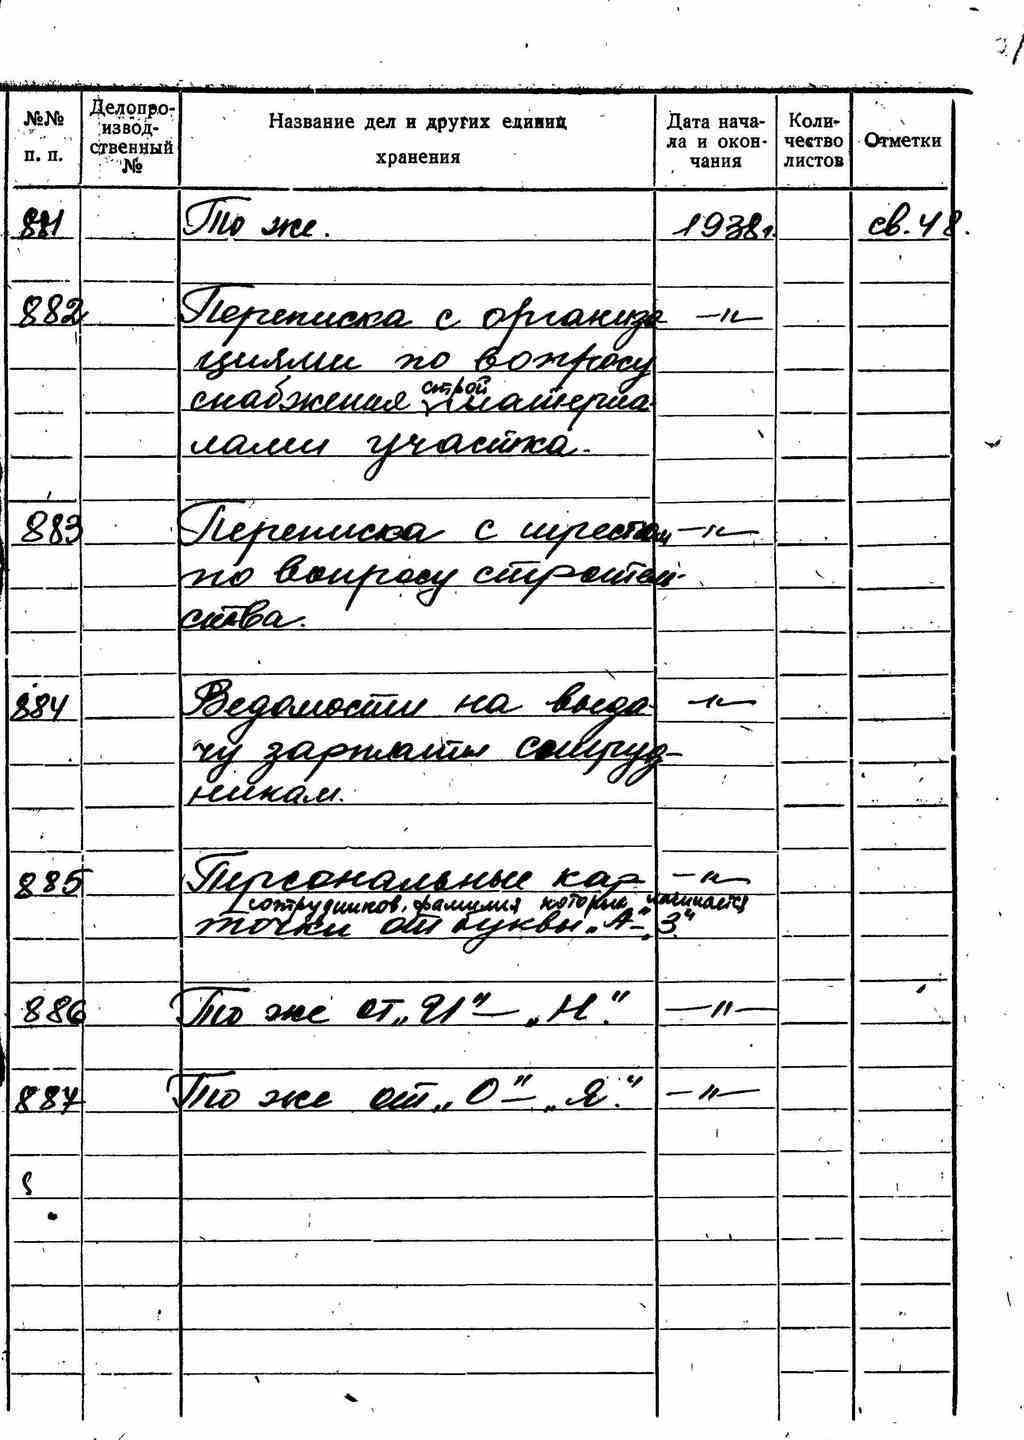 №№ п. п.
Делопро-
извод-
ственный
№
Название дел и других единиц
хранения
Дата нача-
ла и окон-
чания
Коли-
чество
листов
Отметки
881 То же. 1938г. св. 48.
882 Переписка с организа —"—
циями по вопросу
строй
снабжения материа
лами участка.
883 Переписка с трестом —"—
по вопросу строитель-
ства.
884 Ведомости на выда- —"—
чу зарплаты сотруд-
никам.
885 Персональные кар- —"—
сотрудников, фамилия которых начинается
точки от буквы „А"-„З."
886 То же от „И"— „Н." —"—
887 То же от „О"— „Я." —"—